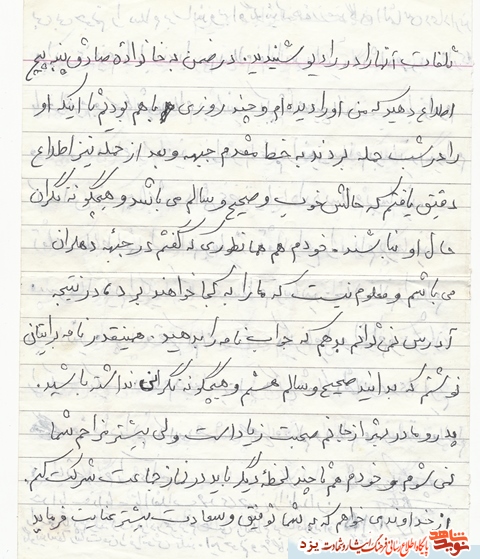 تلفات آنها را در رادیو شنیدید. در ضمن به خانواده صادق پنبه پیچ
اطلاع دهید که من او را دیده‌ام و چند روزی باهم بودیم تا اینکه او
را در شب حمله بردند به خط مقدم جبهه و بعد از حمله نیز اطلاع
دقیق یافتم که حالش خوب و صحیح و سالم می باشد و هیچگونه نگران
حال او نباشند. خودم هم همانطوری که گفتم در جبهه دهلران
می باشم و معلوم نیست که ما را به کجا خواهند برد و در نتیجه
آدرس نمی‌توانم بدهم که جواب نامه را بدهید. همینقدر نامه برایتان
نوشتم که بدانید صحیح و سالم هستم و هیچگونه نگرانی نداشته باشید.
پدر و مادر عزیز از جانم صحبت زیاد است ولی بیشتر مزاحم شما
نمی شوم و خودم هم تا چند لحظه دیگر باید در نماز جماعت شرکت کنم.
از خداوند می خواهم که به شما توفیق و سعادت بیشتر عنایت فرماید
نوید شاهد
پایگاه اطلاع رسانی فرهنگ ایثار و شهادت یزد